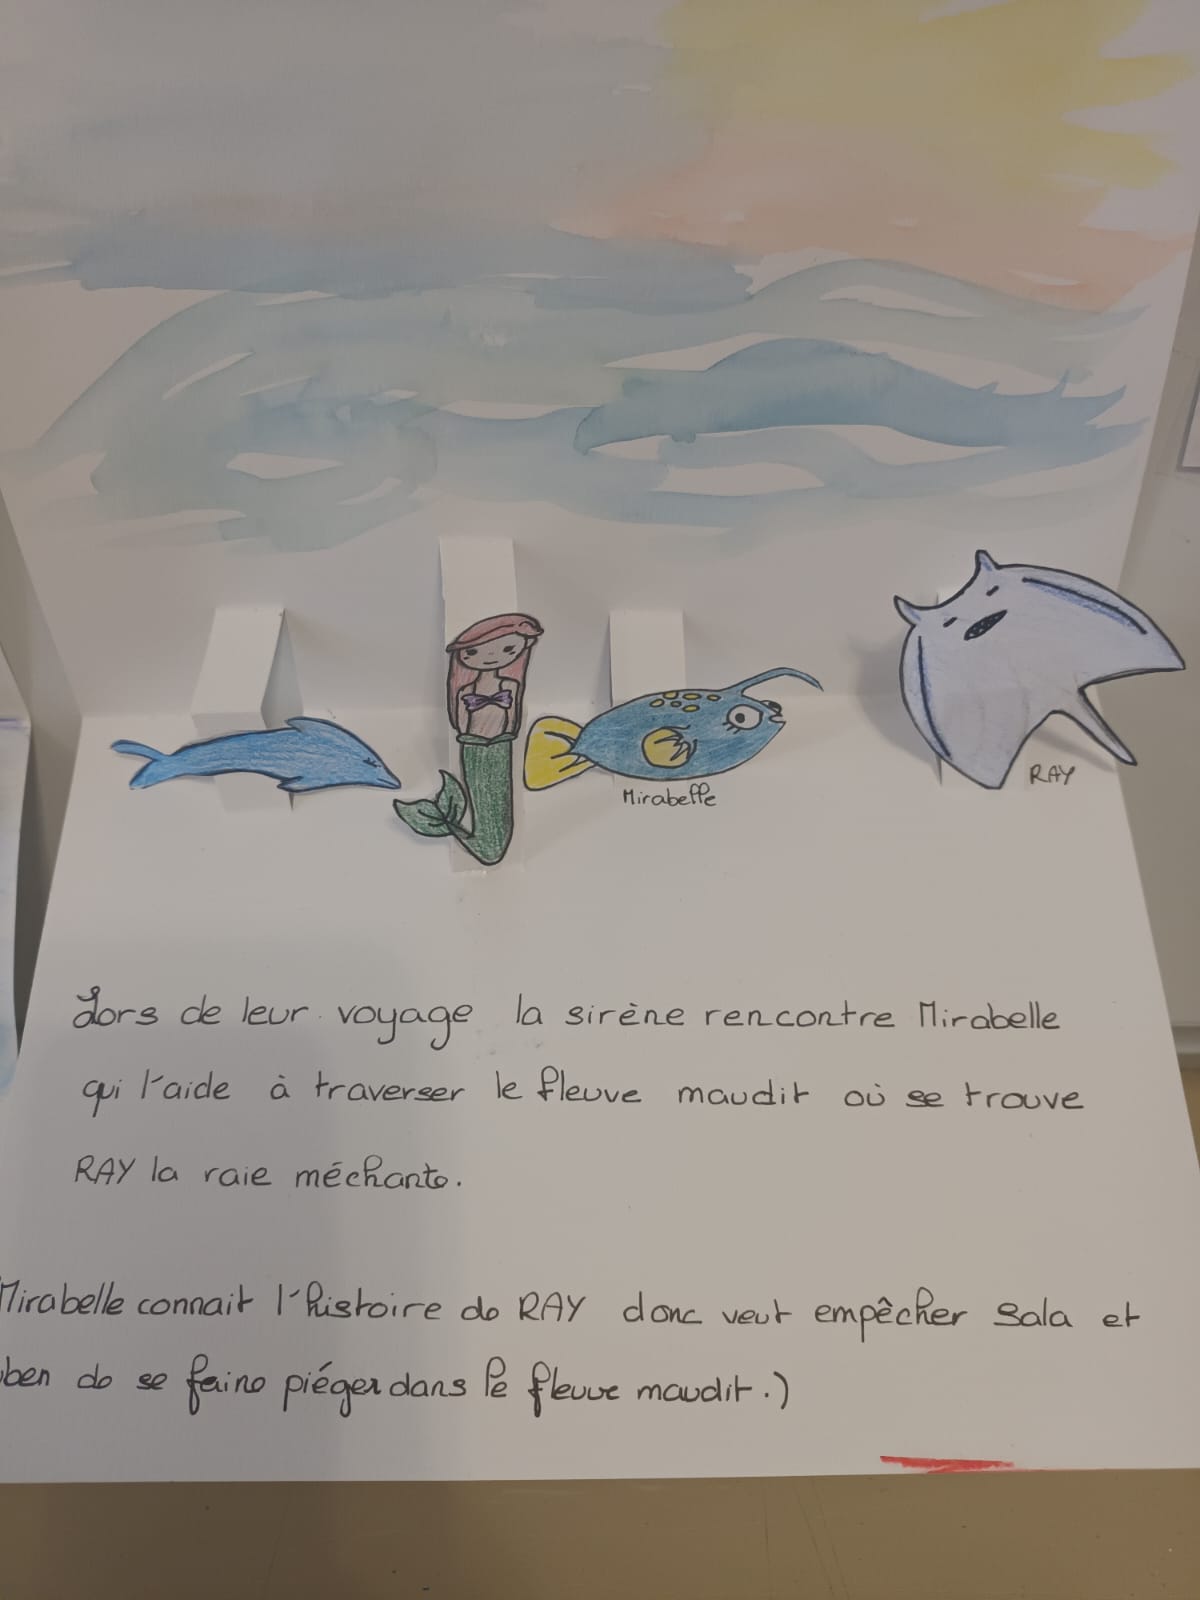 Mirabelle
RAY
Lors de leur voyage la sirène rencontre Mirabelle
qui l'aide à traverser le fleuve maudit où se trouve
RAY la raie méchante.
Mirabelle connait l'histoire de RAY donc veut empêcher Sala et
ben de se faire piéger dans le fleuve maudit.)